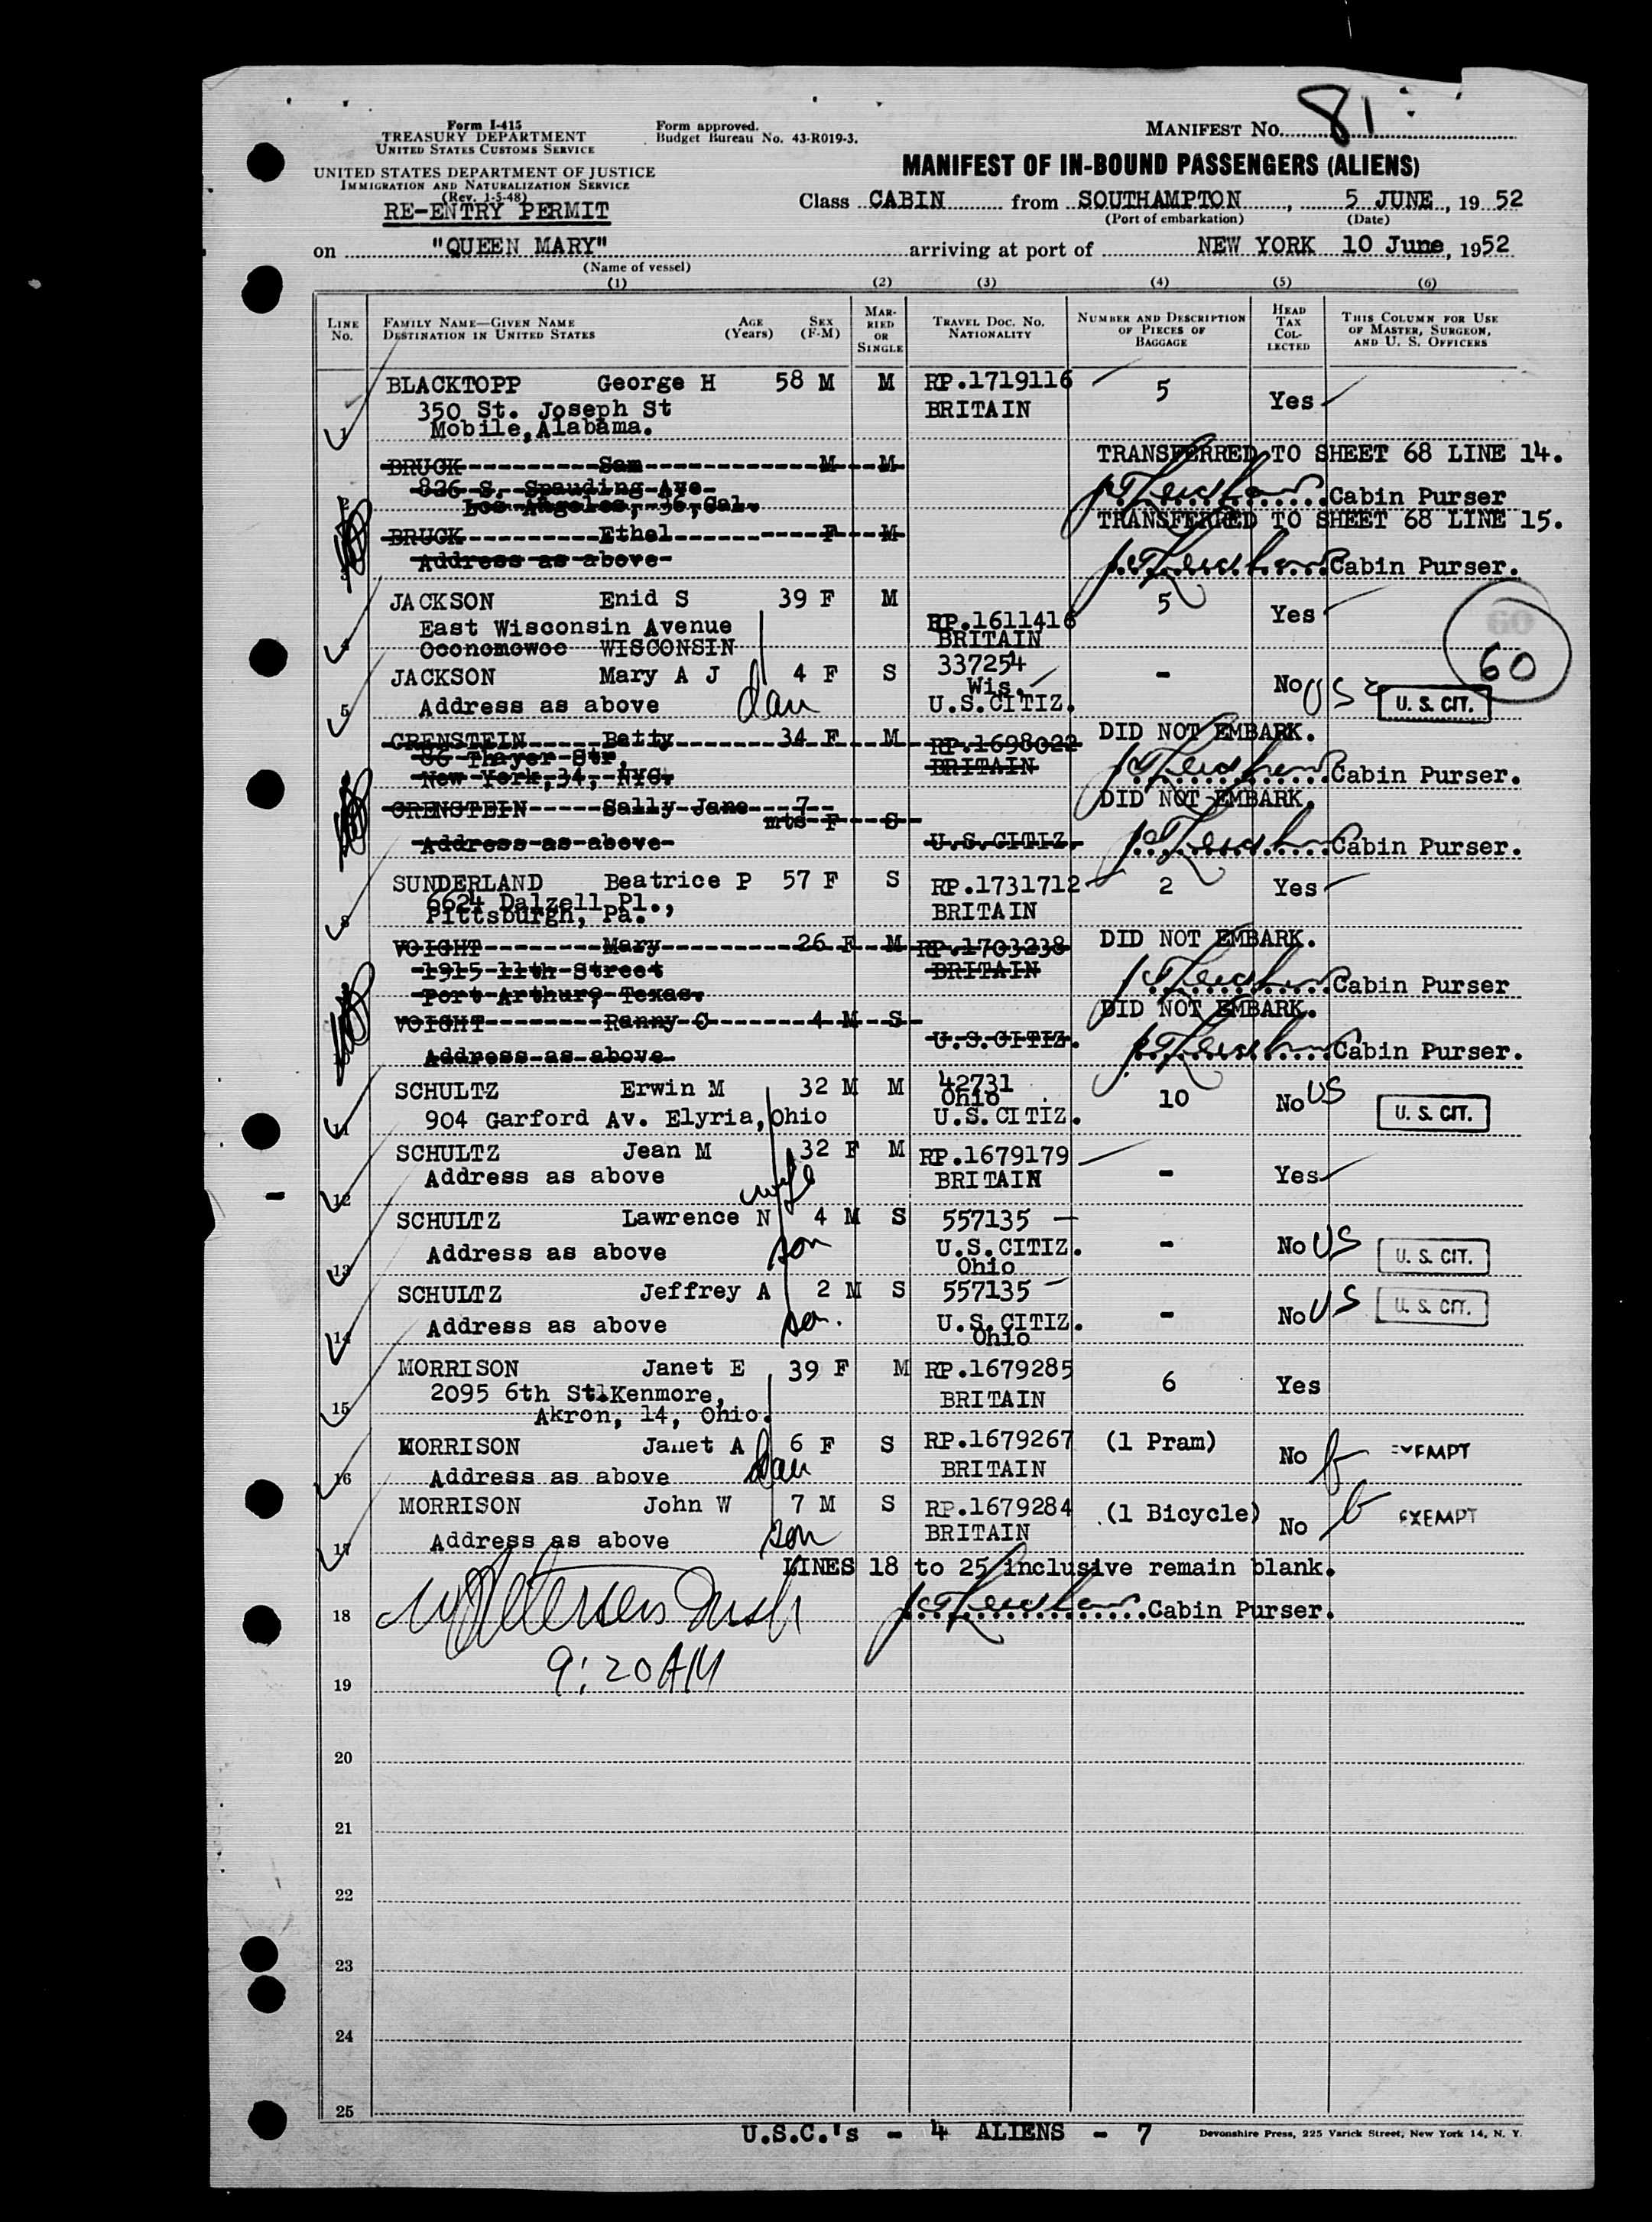 81
Form I-415
TREASURY DEPARTMENT
UNITED STATES CUSTOMS SERVICE
Form approved.
Budget Bureau No. 43-R019-3.
MANIFEST NO.
UNITED STATES DEPARTMENT OF JUSTICE
IMMIGRATION AND NATURALIZATION SERVICE
(Rev. 1-5-48)
RE-ENTRY PERMIT
MANIFEST OF IN-BOUND PASSENGERS (ALIENS)
Class CABIN from SOUTHAMPTON, 5 JUNE, 1952
(Port of embarkation) (Date)
on "QUEEN MARY" arriving at port of NEW YORK 10 June, 1952
(Name of vessel)
(1) (2) (3) (4) (5) (6)
LINE No. FAMILY NAME—GIVEN NAME DESTINATION IN UNITED STATES AGE (Years) SEX (F-M) MARRIED OR SINGLE TRAVEL DOC. NO. NATIONALITY NUMBER AND DESCRIPTION OF PIECES OF BAGGAGE HEAD TAX COLLECTED THIS COLUMN FOR USE OF MASTER, SURGEON, AND U. S. OFFICERS
BLACKTOPP George H 58 M M RP.1719116 5 Yes
350 St. Joseph St BRITAIN
1 Mobile, Alabama.
BRUCK Sam M M TRANSFERRED TO SHEET 68 LINE 14.
826 S. Spauding Ave
2 Los Angeles, 36, Cal. Cabin Purser
BRUCK Ethel F M TRANSFERRED TO SHEET 68 LINE 15.
3 Address as above Cabin Purser.
JACKSON Enid S 39 F M 5 Yes
East Wisconsin Avenue RP.1611416
4 Oconomowoc WISCONSIN BRITAIN
60
JACKSON Mary A J 4 F S 337254 - No US
Wis.
5 Address as above dau U.S.CITIZ. U. S. CIT.
GRENSTEIN Betty 34 F M RP.1698022 DID NOT EMBARK.
66 Thayer Str, BRITAIN
New York, 34, NYC. Cabin Purser.
GRENSTEIN Sally Jane 7 mts F S DID NOT EMBARK.
Address as above U.S.CITIZ. Cabin Purser.
SUNDERLAND Beatrice P 57 F S RP.1731712 2 Yes
6624 Dalzell Pl., BRITAIN
8 Pittsburgh, Pa.
VOIGHT Mary 26 F M RP.1703238 DID NOT EMBARK.
1915 11th Street BRITAIN
Port Arthur, Texas. Cabin Purser
VOIGHT Ranny C 4 M S DID NOT EMBARK.
U.S.CITIZ.
Address as above Cabin Purser.
SCHULTZ Erwin M 32 M M 42731 10 No US
Ohio
11 904 Garford Av. Elyria, Ohio U.S.CITIZ. U. S. CIT.
SCHULTZ Jean M 32 F M RP.1679179 - Yes
12 Address as above wife BRITAIN
SCHULTZ Lawrence N 4 M S 557135 - No US
13 Address as above son U.S.CITIZ. U. S. CIT.
Ohio
SCHULTZ Jeffrey A 2 M S 557135 - No US U. S. CIT.
14 Address as above son. U.S.CITIZ.
Ohio
MORRISON Janet E 39 F M RP.1679285 6 Yes
2095 6th St.Kenmore, BRITAIN
15 Akron, 14, Ohio.
MORRISON Janet A 6 F S RP.1679267 (1 Pram) No EXEMPT
16 Address as above dau BRITAIN
MORRISON John W 7 M S RP.1679284 (1 Bicycle) No EXEMPT
17 Address as above son BRITAIN
LINES 18 to 25 inclusive remain blank.
18 Cabin Purser.
9:20AM
19
20
21
22
23
24
25
U.S.C.'s - 4 ALIENS - 7
Devonshire Press, 225 Varick Street, New York 14, N. Y.